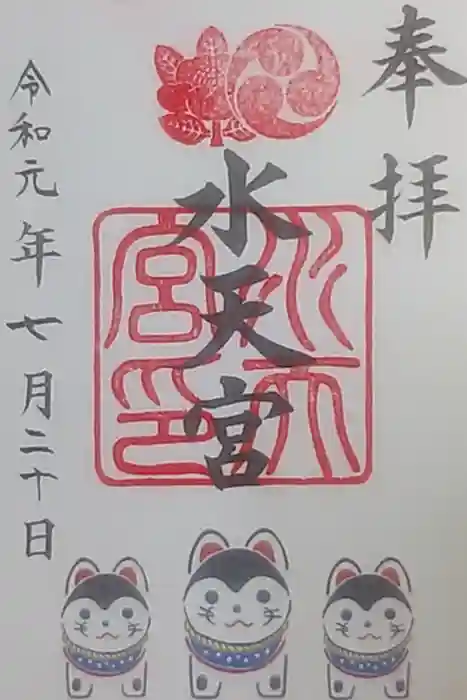 奉拝
水天宮
水天宮印
令和元年七月二十日